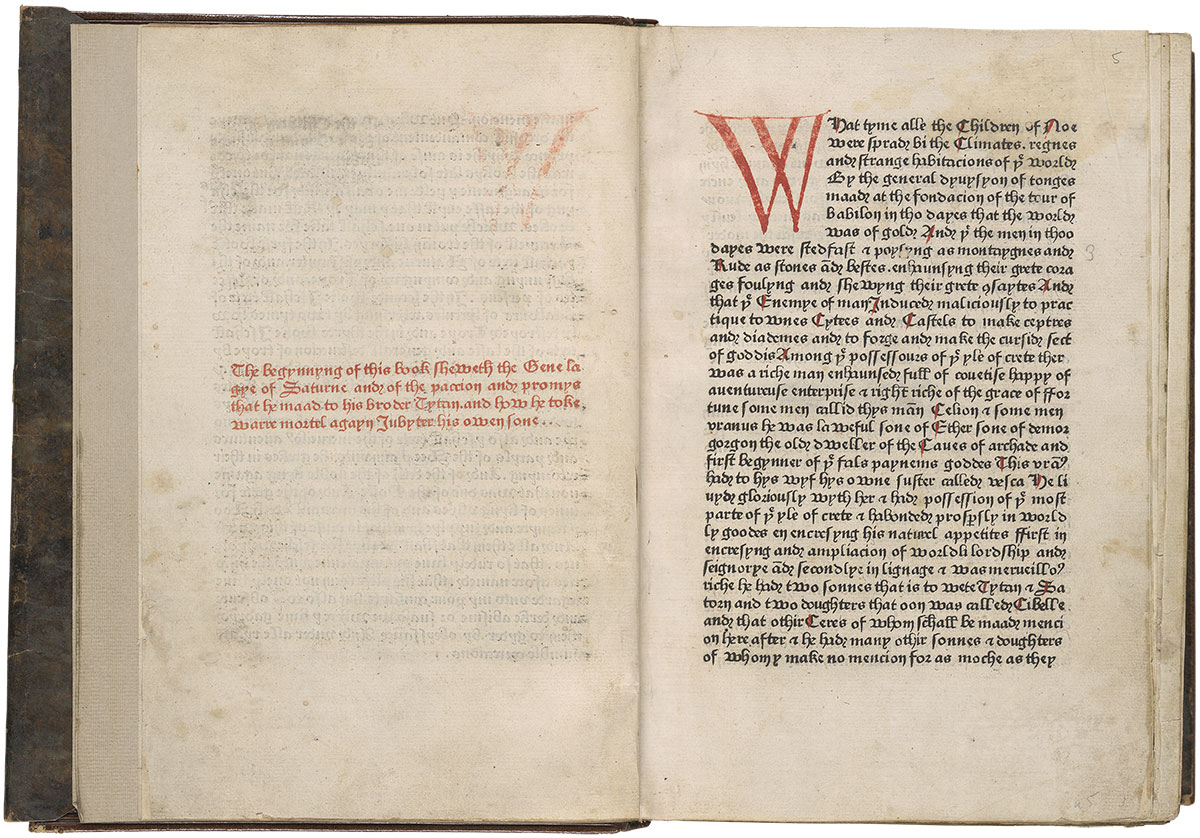 The begynnyng of this book sheweth the Gene la
gye of Saturne and of the paccion and promys
that he maad to his broder Tytan. and how he toke.
warre mortel agayn Jubyter his owen sone
5
WHat tyme alle the Children of Noe
were sprad bi the Climates. regnes
and strange habitacions of yͤ world
By the general dyuysyon of tonges
maad at the fondacion of the tour of
Babilon in tho dayes that the world
was of gold And yͤ the men in thoo
dayes were stedfast & poysyng as montaygnes and
Rude as stones ād bestes. enhaunsyng their grete cora
ges foulyng and shewyng their grete ꝯsaytes And
that yͤ Enemye of man Induced maliciously to prac
tique to wnes Cytees and Castels to make ceptres
and diademes and to forge and make the cursid sect
of goddis Among yͤ possessours of yͤ yle of crete ther
was a riche man enhaunsed full of couetise happy of
auentureuse enterprise & right riche of the grace of ffor
tune some men callid thys mān Celion & some men
vranus he was laweful sone of Ether sone of demor
gorgon the old dweller of the Caues of archade and
first begynner of yͤ fals paynems goddes This vrāꝰ
had to hys wyf hys owne suster called vesca He li
uyd gloriously wyth her & had possession of yͤ most
parte of yͤ yle of crete & habonded prosꝑsly in world
ly goodes en encresyng his naturel appetites ffirst in
encresyng and ampliacion of worldli lordship and
seignorye ād secondly in lignage & was merueilloꝰ
riche he had two sonnes that is to wete Tytan & Sa
torn and two doughters that oon was called Cibelle.
and that othir Ceres of whom schall be maad menci
on here after & he had many othir sonnes & doughters
of whom y make no mencion for as moche as they
3